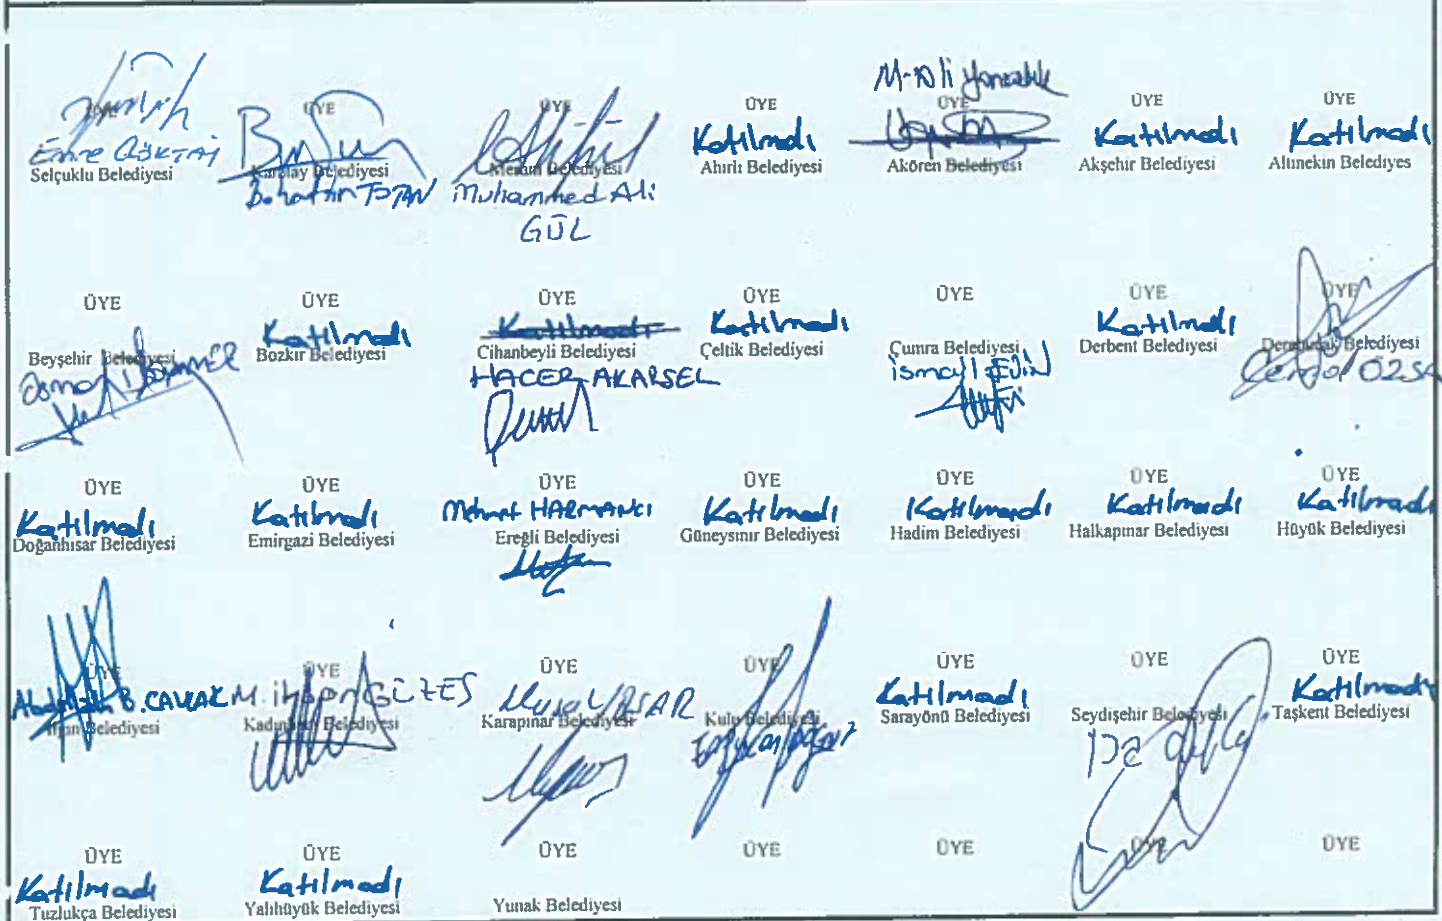 ÜYE
Emre GÖKTAŞ
Selçuklu Belediyesi
ÜYE
Karatay Belediyesi
Bahattin TOTAN
ÜYE
Meram Belediyesi
Muhammed Ali
GÜL
ÜYE
Katılmadı
Ahırlı Belediyesi
M. Ali
ÜYE
Akören Belediyesi
ÜYE
Katılmadı
Akşehir Belediyesi
ÜYE
Katılmadı
Altınekin Belediyes
ÜYE
Beyşehir Belediyesi
Osman
ÜYE
Katılmadı
Bozkır Belediyesi
ÜYE
Katılmadı
Cihanbeyli Belediyesi
HACER AKARSEL
ÜYE
Katılmadı
Çeltik Belediyesi
ÜYE
Çumra Belediyesi
ismail EVİN
ÜYE
Katılmadı
Derbent Belediyesi
ÜYE
Derebucak Belediyesi
ÜYE
Katılmadı
Doğanhisar Belediyesi
ÜYE
Katılmadı
Emirgazi Belediyesi
ÜYE
Mehmet HARMANCI
Ereğli Belediyesi
ÜYE
Katılmadı
Güneysınır Belediyesi
ÜYE
Katılmadı
Hadim Belediyesi
ÜYE
Katılmadı
Halkapınar Belediyesi
ÜYE
Katılmadı
Hüyük Belediyesi
ÜYE
Abdullah B. CAVLAK
Ilgın Belediyesi
ÜYE
M. ihsan GÜNEŞ
Kadınhanı Belediyesi
ÜYE
Musa YAŞAR
Karapınar Belediyesi
ÜYE
Kulu Belediyesi
ÜYE
Katılmadı
Sarayönü Belediyesi
ÜYE
Seydişehir Belediyesi
ÜYE
Katılmadı
Taşkent Belediyesi
ÜYE
Katılmadı
Tuzlukça Belediyesi
ÜYE
Katılmadı
Yalıhüyük Belediyesi
ÜYE
Yunak Belediyesi
ÜYE
ÜYE
ÜYE
ÜYE